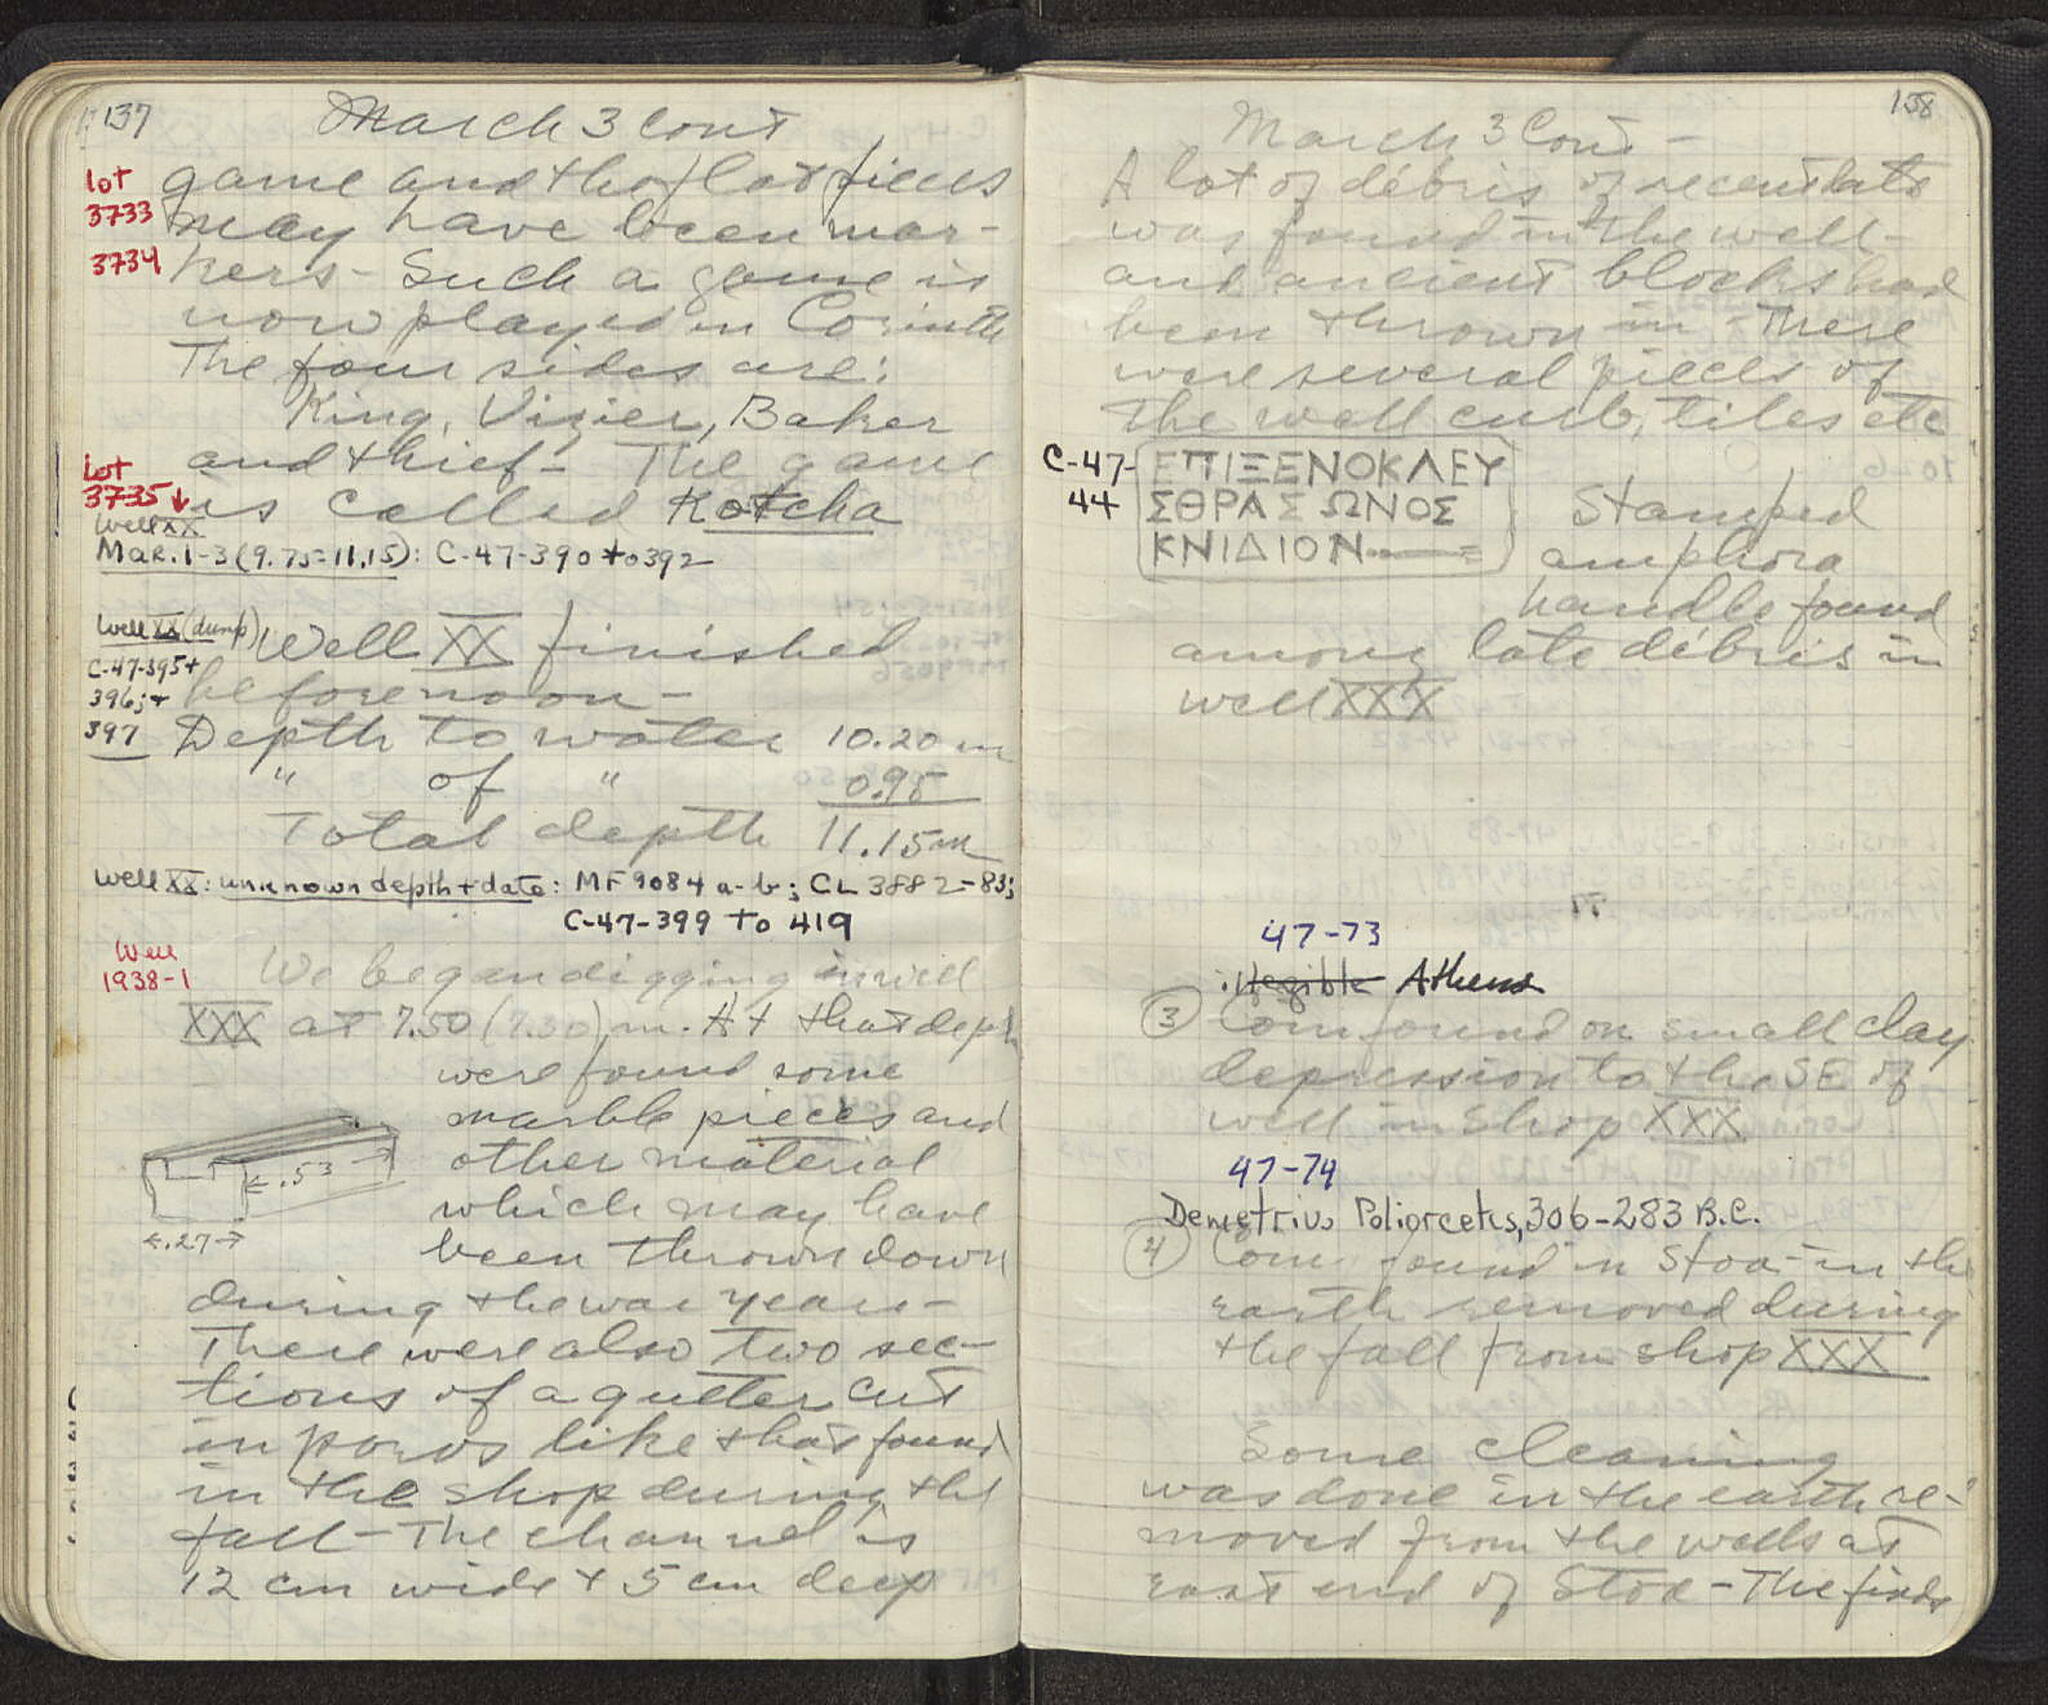 137
March 3 Cont
lot
3733
3734
game and the flat pieces
may have been mar-
kers - Such a game is
now played in Corinth
The four sides are:
King, Vizier, Baker
and thief - The game
is called Kotcha
Lot
3735 ↓
Well XX
Mar. 1-3 (9.75-11.15): C-47-390 to 392
Well XX (dump)
C-47-395+
396; +
397
Well XX finished
before noon -
Depth to water 10.20 m
" of " 0.95
Total depth 11.15 m
Well XX: unknown depth + date: MF 9084 a-b; CL 3882-83;
C-47-399 to 419
Well
1938-1
We began digging in well
XXX at 7.50 (7.30) m. At that depth
were found some
marble pieces and
other material
which may have
been thrown down
.53
.27
during the war years -
There were also two sec-
tions of a gutter cut
in poros like that found
in the shop during the
fall - The channel is
12 cm wide + 5 cm deep
158
March 3 Cont -
A lot of débris of recent date
was found in the well -
and ancient blocks had
been thrown in - There
were several pieces of
the well curb, tiles etc
C-47-
44
ΕΠΙΞΕΝΟΚΛΕΥ
ΣΘΡΑΣΩΝΟΣ
ΚΝΙΔΙΟΝ
Stamped
amphora
handle found
among late débris in
well XXX
47-73
illegible Athens
③ Coin found on small clay
depression to the SE of
well in Shop XXX
47-74
Demetrius Poliorcetes, 306-283 B.C.
④ Coin found in Stoa - in the
earth removed during
the fall from shop XXX
Some cleaning
was done in the earth re-
moved from the wells at
east end of Stoa - The finds